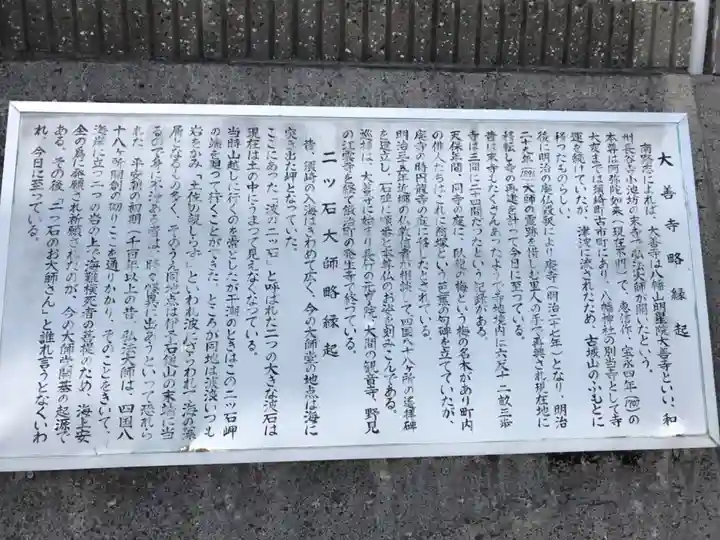 大善寺略縁起
南路志によれば、大善寺は八幡山明星院大善寺といい、和
州長谷寺小池坊の末寺で弘法大師が開いたという。
本尊は阿弥陀如来(現在不明)で、恵心作、宝永四年(1707)の
大変までは須崎町古市町にあり、八幡神社の別当寺として寺
運を続けていたが、津波に流されたため、古城山のふもとに
移ったものらしい。
後に明治の廃仏毀釈により廃寺(明治三十七年)となり、明治
二十七年大師の霊跡を惜しむ里人の手で再興され現在地に
移転し寺の再建を計って今日に至っている。
昔は末寺もたくさんあったようで寺地境内に六反十二畝三歩
寺は三間に二十四間だったという記録がある。
天保年間、同寺の庭に、臥龍の梅という梅の名木があり町内
の俳人たちはこれに翁塚という芭蕉の句碑を立てていたが、
廃寺の時円龍寺の庭に移したとされている。
明治三五年近郷の仏教信者が相談して四国八十八ヶ所の遥拝碑
を建立し、石碑に順番と本尊仏のお姿を刻みこんである。
巡拝は、大善寺に始まり長竹の元亨院、大間の観音寺、野見
の江雲寺を経て鍛治町の発生寺で終っている。
二ッ石大師略縁起
昔、須崎の入海はきわめて広く、今の大師堂の地点は海に
突き出た岬となっていた。
ここにあった「波の二ッ石」と呼ばれた二つの大きな波石は
現在は土の中にうまって見えなくなっている。
当時山越しに行くのを常としたが干潮のときはこの二ッ石岬
の端を廻って行くことができた。ところが同地は波浪いつも
岩をかみ「土佐の親しらず」といわれ波にさらわれ海の藻
屑となるもの多く、そのうえ同地点は伊予石鎚山の末端に当
るので身に不浄ある者は、時々怪異に出あうといって恐れら
れた。平安朝の初期、千百年以上の昔、弘法大師は、四国八
十八ヶ所開創の砌りここを通りかかり、そのことをきいて、
海岸に立つ二つの岩の上で海難横死者の菩提のため、海上安
全の為に発願され祈願されたのが、今の大師堂開基の起源で
ある。その後「二っ石のお大師さん」と誰れ言うとなくいわ
れ、今日に至っている。